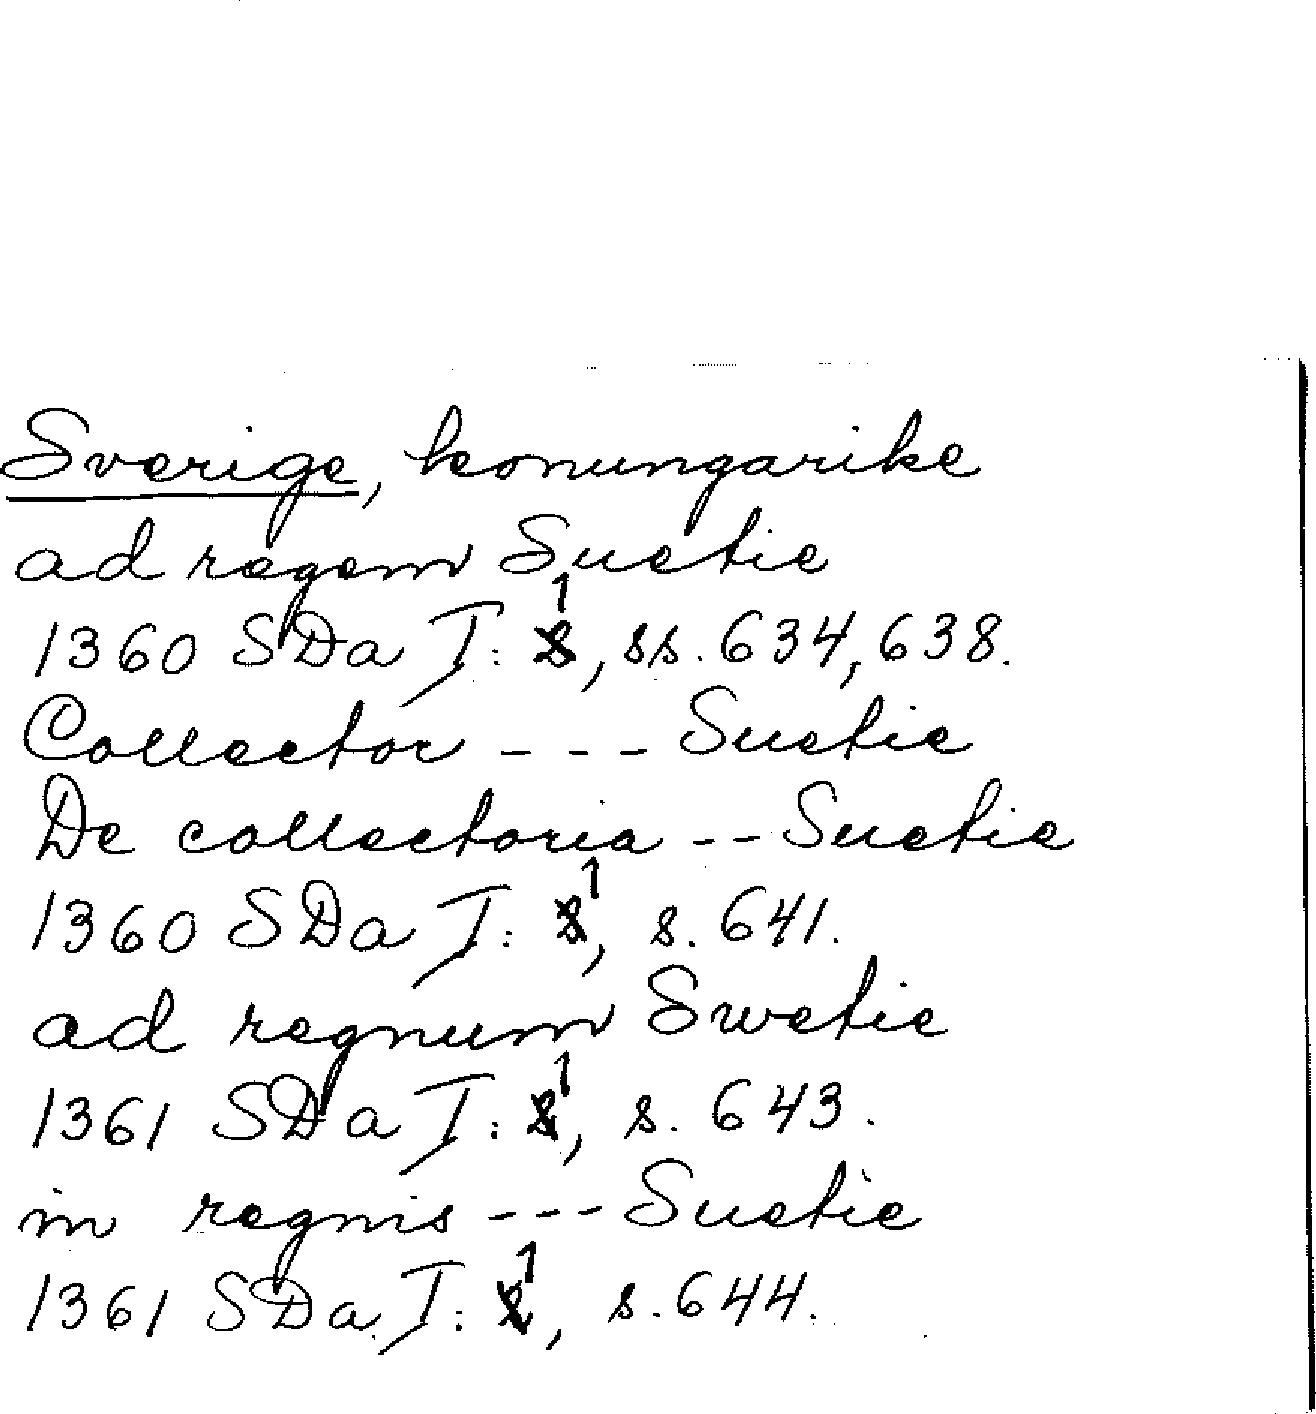 Sverige, konungarike
ad regem Suetie
1360 SDa I: 1, ss. 634, 638.
Collector - - - Suetie
De collectoria - - Suetie
1360 SDa I: 1, s. 641.
ad regnum Swetie
1361 SDa I: 1, s. 643.
in regnis - - - Suetie
1361 SDa I: 1, s. 644.